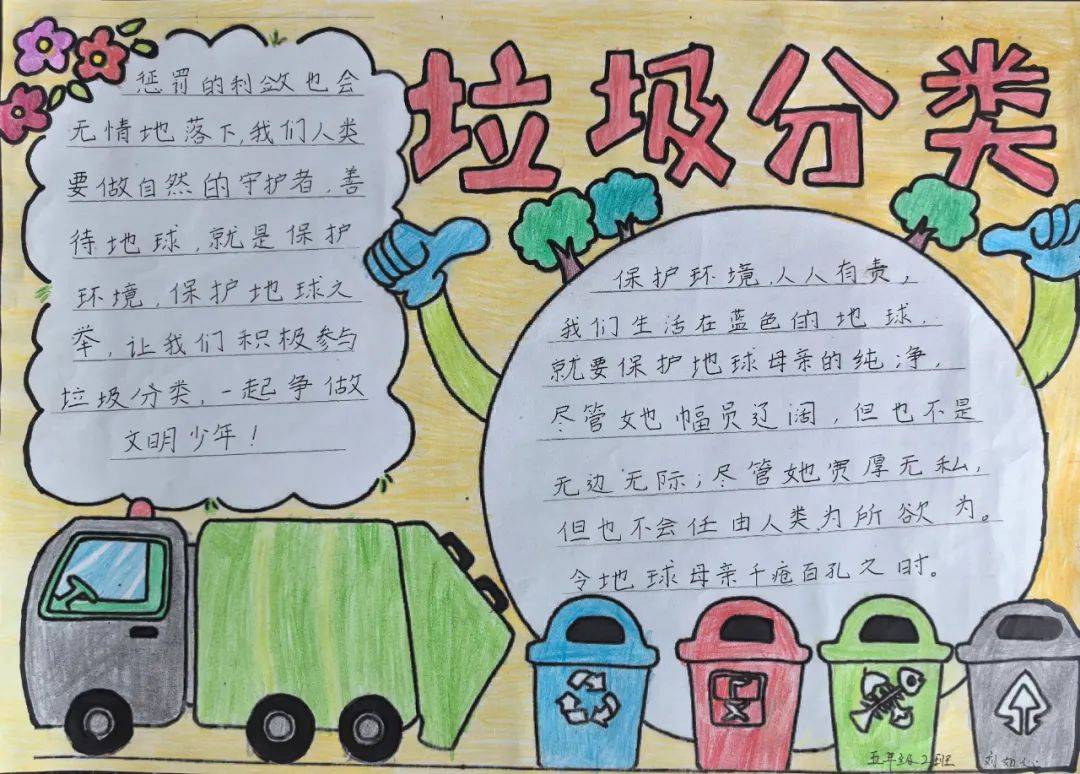 垃圾分类
惩罚的利敛也会
无情地落下,我们人类
要做自然的守护者,善
待地球,就是保护
环境,保护地球之
举,让我们积极参与
垃圾分类,一起争做
文明少年!
保护环境,人人有责,
我们生活在蓝色的地球,
就要保护地球母亲的纯净,
尽管她幅员辽阔,但也不是
无边无际;尽管她宽厚无私,
但也不会任由人类为所欲为。
令地球母亲千疮百孔之时。
五年级2班